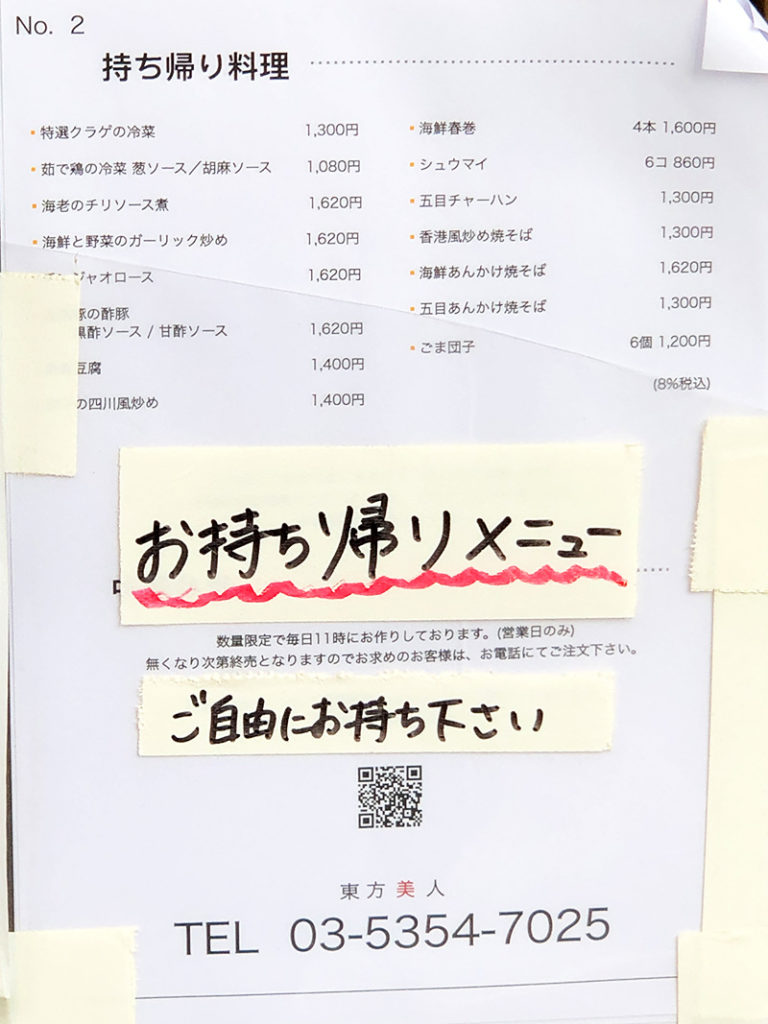 No. 2
持ち帰り料理
特選クラゲの冷菜 1,300円
茹で鶏の冷菜 葱ソース／胡麻ソース 1,080円
海老のチリソース煮 1,620円
海鮮と野菜のガーリック炒め 1,620円
ジャオロース 1,620円
豚の酢豚
黒酢ソース / 甘酢ソース 1,620円
豆腐 1,400円
の四川風炒め 1,400円
海鮮春巻 4本 1,600円
シュウマイ 6コ 860円
五目チャーハン 1,300円
香港風炒め焼そば 1,300円
海鮮あんかけ焼そば 1,620円
五目あんかけ焼そば 1,300円
ごま団子 6個 1,200円
(8%税込)
お持ち帰りメニュー
数量限定で毎日11時にお作りしております。(営業日のみ)
無くなり次第終売となりますのでお求めのお客様は、お電話にてご注文下さい。
ご自由にお持ち下さい
東方美人
TEL 03-5354-7025